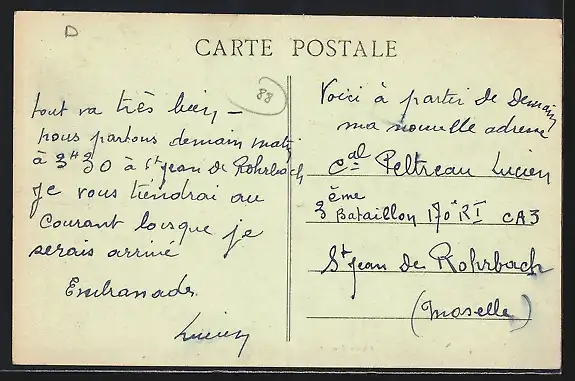 D
CARTE POSTALE
88
tout va très bien –
nous partons demain matin
à 3H30 à St Jean de Rohrbach
Je vous tiendrai au
courant lorsque je
serais arrivé
Embrassades
Lucien
Voici à partir de Demain
ma nouvelle adresse
Cal Peltreau Lucien
3ème Bataillon 170e RI CA3
St Jean de Rohrbach
(Moselle)